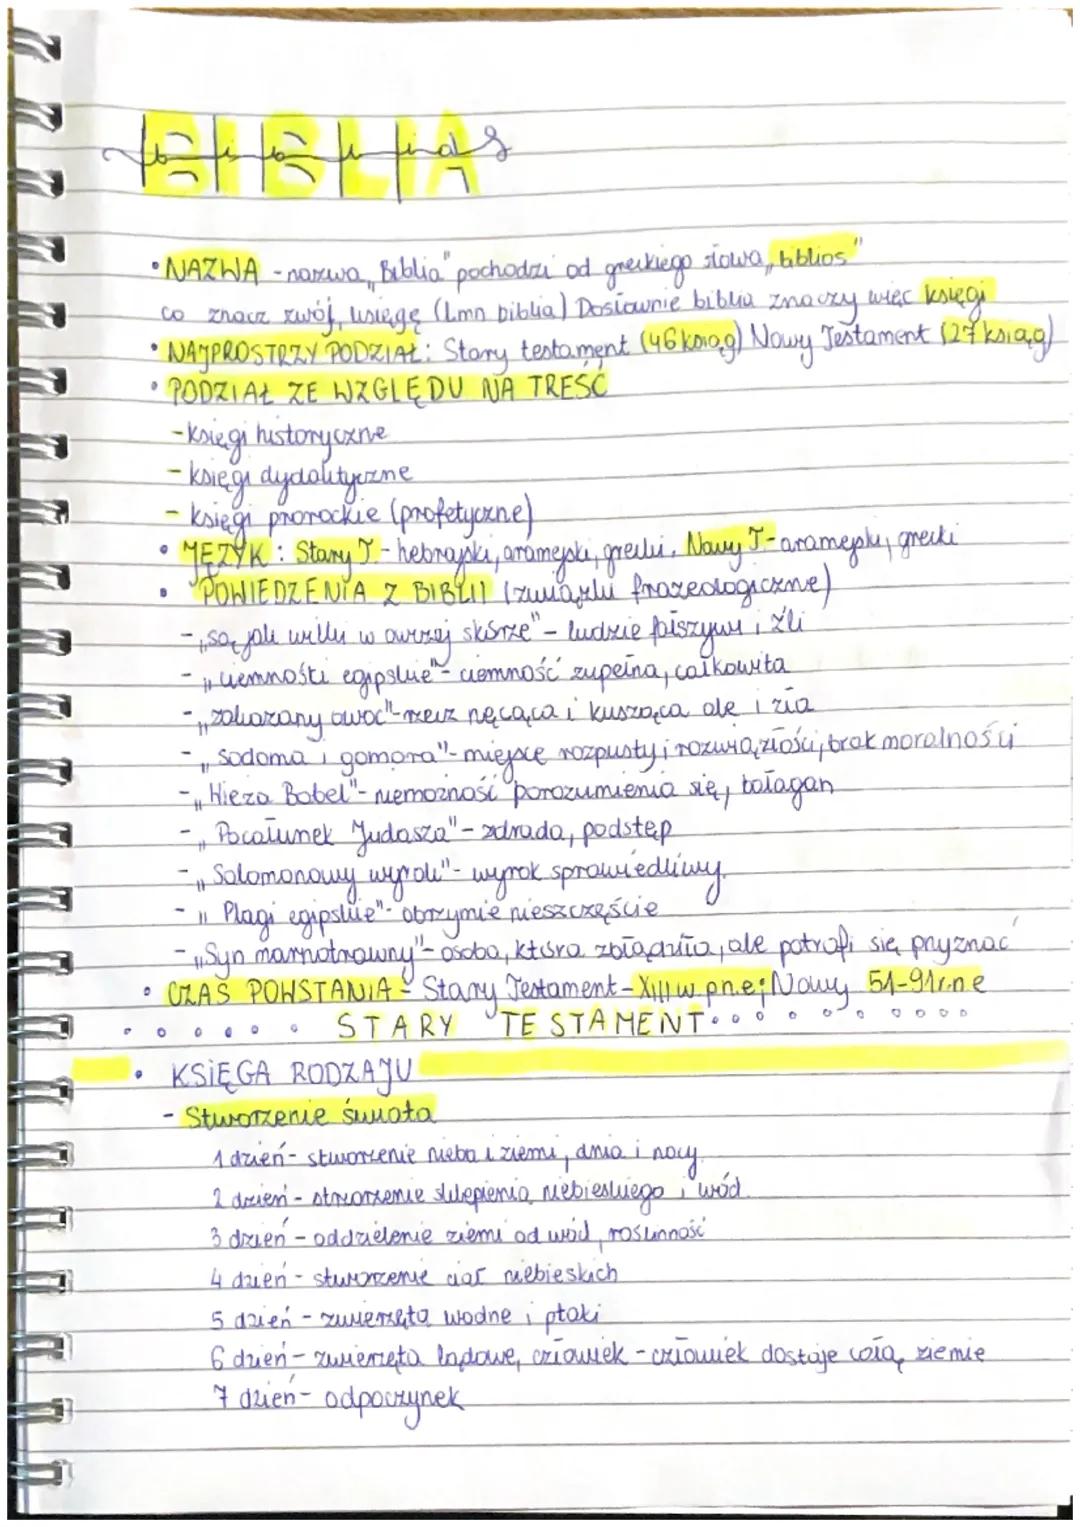 BIBLIA
• NAZWA - nazwa „Biblia" pochodzi od greckiego słowa „biblios"
co znacz zwój, księgę (Lmn biblia) Dosłownie biblia znaczy więc księgi
• NAJPROSTRZY PODZIAŁ: Stary testament (46 ksiąg) Nowy Testament (27 ksiąg)
• PODZIAŁ ZE WZGLĘDU NA TREŚĆ
- księgi historyczne
- księgi dydaktyczne
- księgi prorockie (profetyczne)
• JĘZYK: Stary T. - hebrajski, aramejski, grecki, Nowy T - aramejski, grecki
• POWIEDZENIA Z BIBLII (związki frazeologiczne)
- „są jak wilki w owczej skórze" - ludzie fałszywi i źli
- „ciemności egipskie" - ciemność zupełna, całkowita
- „zakazany owoc" - rzecz nęcąca i kusząca ale i zła
- „sodoma i gomora" - miejsce rozpusty i rozwiązłości, brak moralności
- „Wieża Babel" - niemożność porozumienia się, bałagan
- „Pocałunek Judasza" - zdrada, podstęp
- „Salomonowy wyrok" - wyrok sprawiedliwy
- „Plagi egipskie" - obrzymie nieszczęście
- „Syn marnotrawny" - osoba, która zbłądziła, ale potrafi się pryznać
• CZAS POWSTANIA - Stary Testament - XIII w p.n.e; Nowy 51-91r.n.e
STARY TESTAMENT
• KSIĘGA RODZAJU
- Stworzenie świata
1 dzień - stworzenie nieba i ziemi, dnia i nocy
2 dzień - stworzenie sklepienia niebieskiego i wód
3 dzień - oddzielenie ziemi od wód, roślinność
4 dzień - stworzenie ciał niebieskich
5 dzień - zwierzęta wodne i ptaki
6 dzień - zwierzęta lądowe, człowiek - człowiek dostaje całą ziemie
7 dzień - odpoczynek